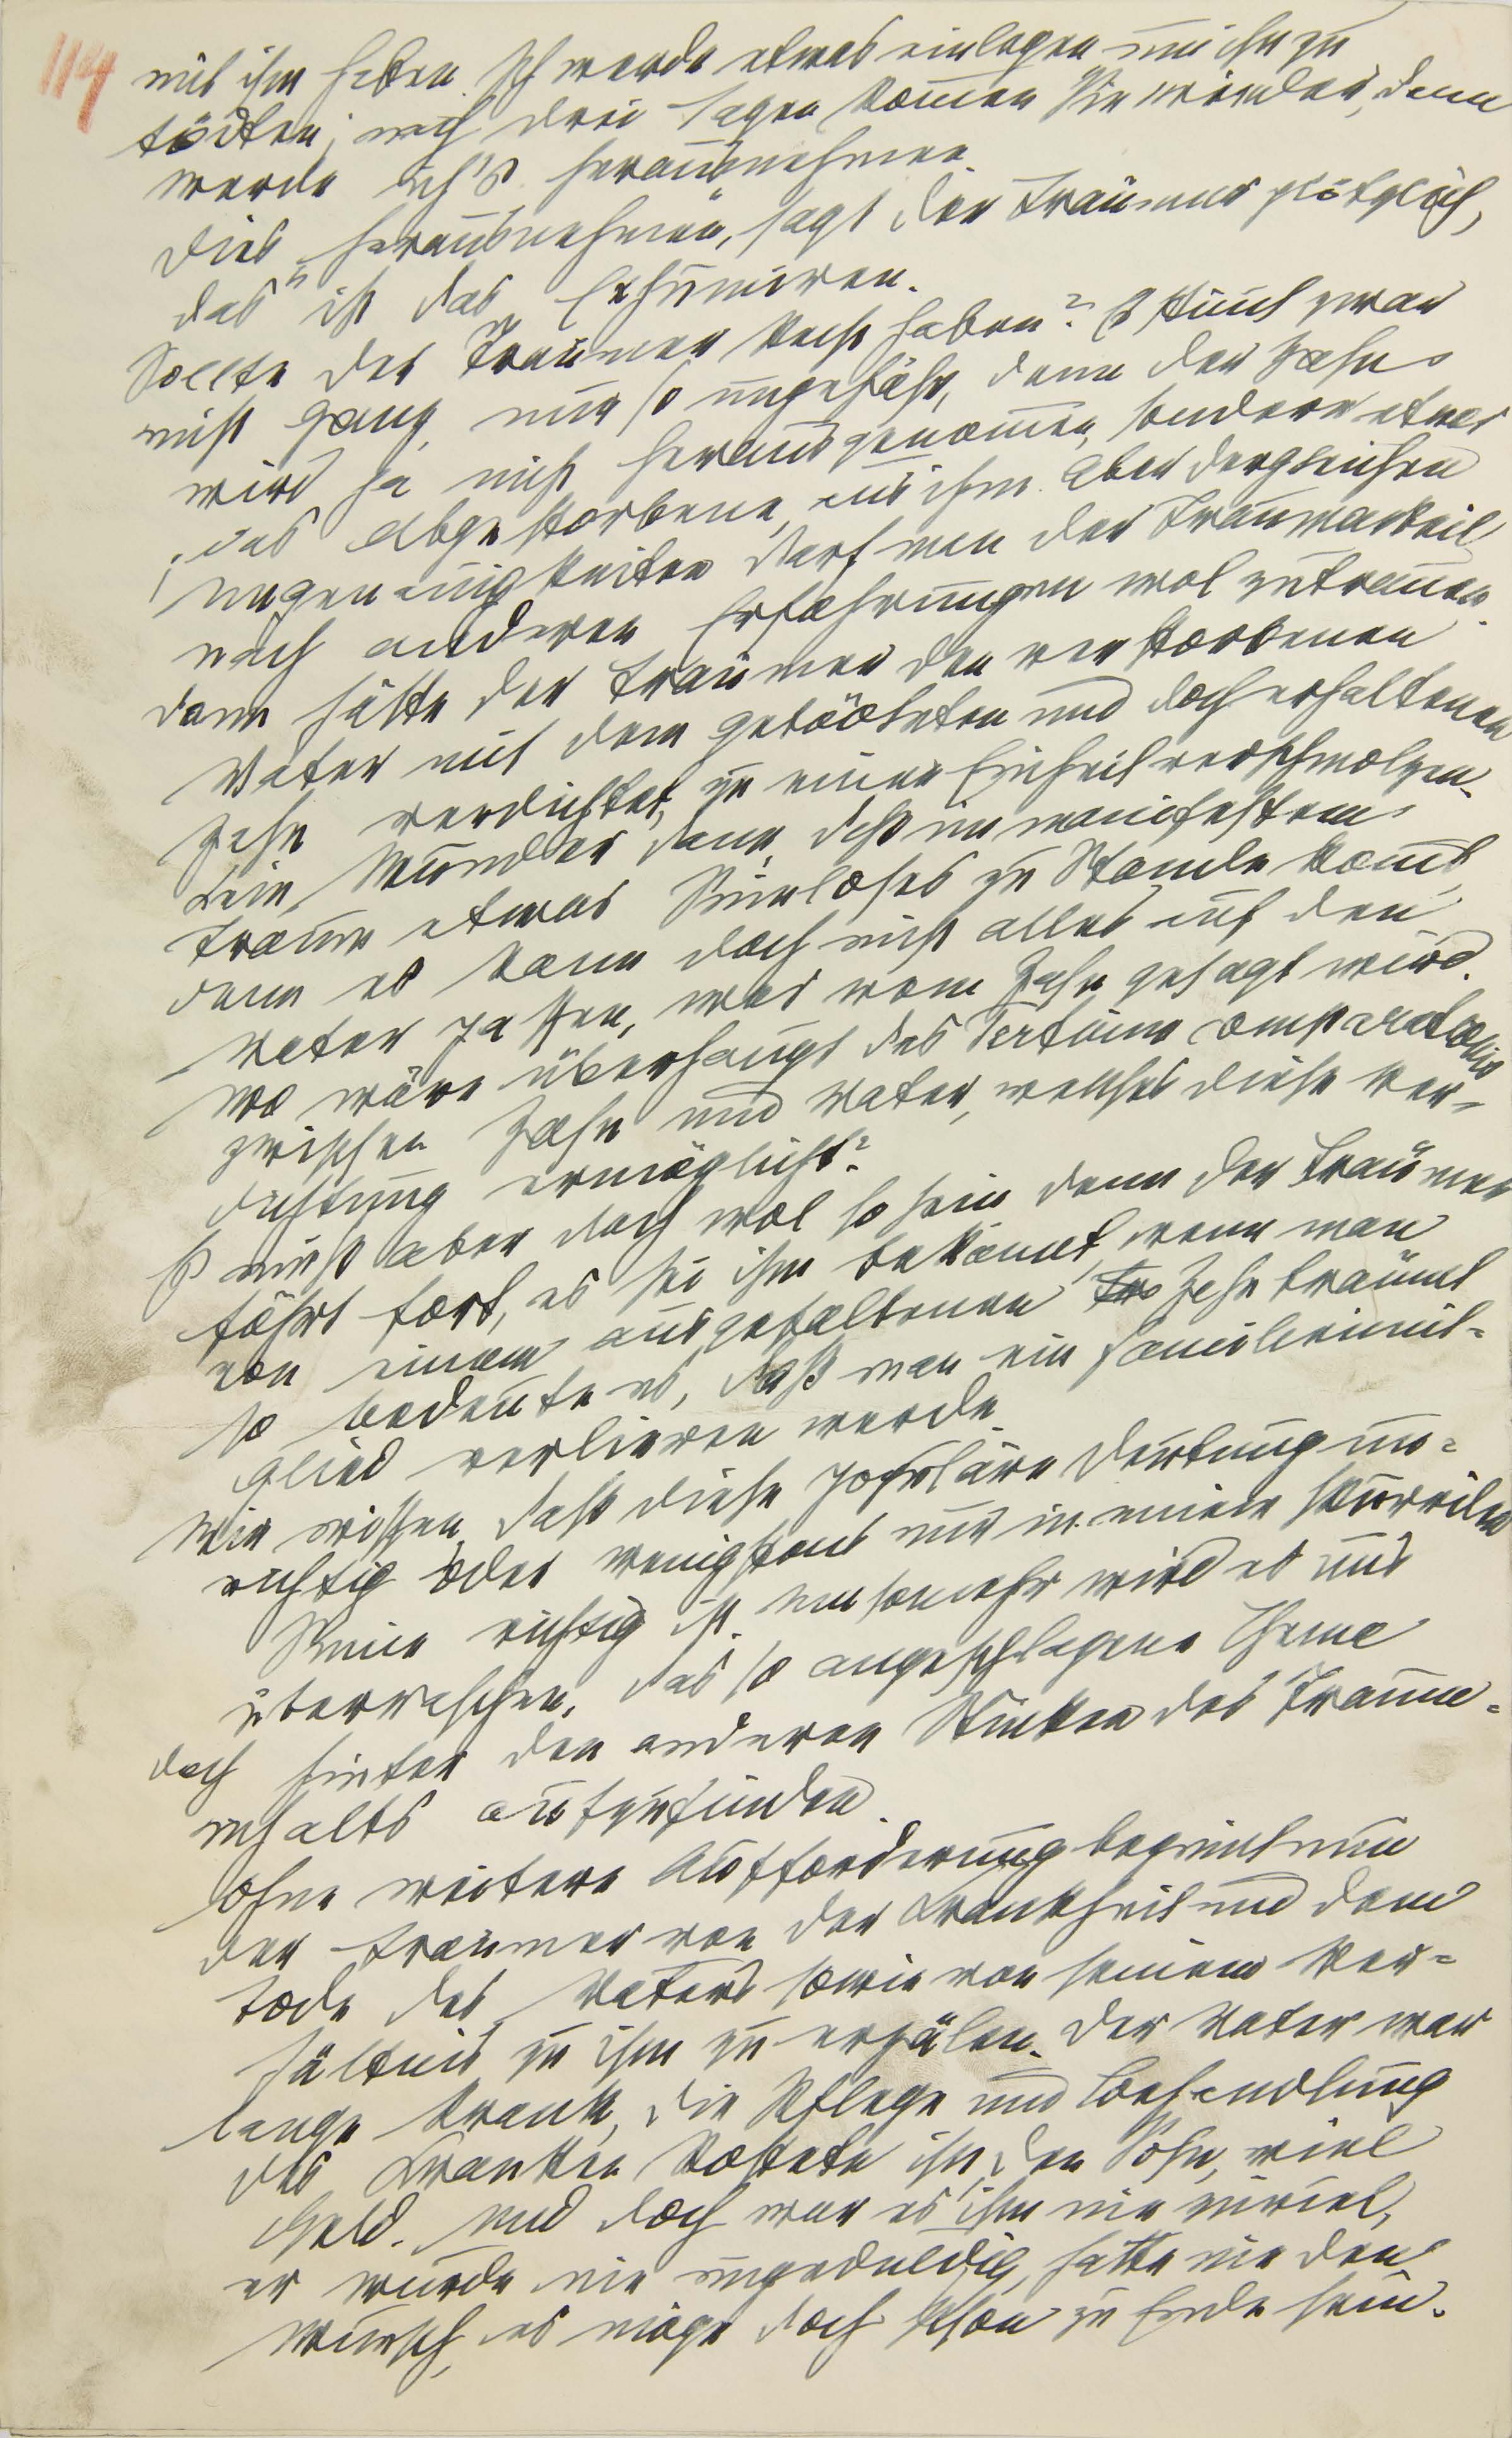 114
mit ihm haben. Ich werde etwas einlegen um ihn zu
tödten; nach drei Tagen kom̄en Sie wieder, dann
werde ich's herausnehmen.
Dies „herausnehmen", sagt der Träumer plötzlich,
das ist das Exhumiren.
Sollte der Träumer Recht haben? Es stim̄t zwar
nicht ganz, nur so ungefähr, denn der Zahn
wird ja nicht herausgenom̄en, sondern etwas
das Abgestorbene, aus ihm. Aber dergleichen
Ungenauigkeiten darf man der Traumarbeit
nach anderen Erfahrungen wol zutrauen.
Dann hätte der Träumer den verstorbenen
Vater mit dem getödteten und doch erhaltenen
Zahn verdichtet, zu einer Einheit verschmolzen.
Kein Wunder dann, daß im manifesten
Traum etwas Sinnloses zu Stande kom̄t,
denn es kann doch nicht alles auf den
Vater passen, was vom Zahn gesagt wird.
Wo wäre überhaupt das Tertium comparationis
zwischen Zahn und Vater, welches diese Ver-
dichtung ermöglicht?
Es muß aber doch wol so sein denn der Träumer
fährt fort, es sei ihm bekannt, wenn man
von einem ausgefallenen Zahn träumt
so bedeute es, daß man ein Familienmit-
glied verlieren werde.
Wir wissen, daß diese populäre Deutung un-
richtig oder wenigstens nur in einem skurrilen
Sinne richtig ist. Umsomehr wird es uns
überraschen, das so angeschlagene Thema
doch hinter den anderen Stücken des Traum-
inhalts aufzufinden.
Ohne weitere Aufforderung beginnt nun
der Träumer von der Krankheit und dem
Tode des Vaters sowie von seinem Ver-
hältnis zu ihm zu erzälen. Der Vater war
lange krank, die Pflege und Behandlung
des Kranken kostete ihn, den Sohn, viel
Geld. Und doch war es ihm nie zuviel,
er wurde nie ungeduldig, hatte nie den
Wunsch, es möge doch schon zu Ende sein.